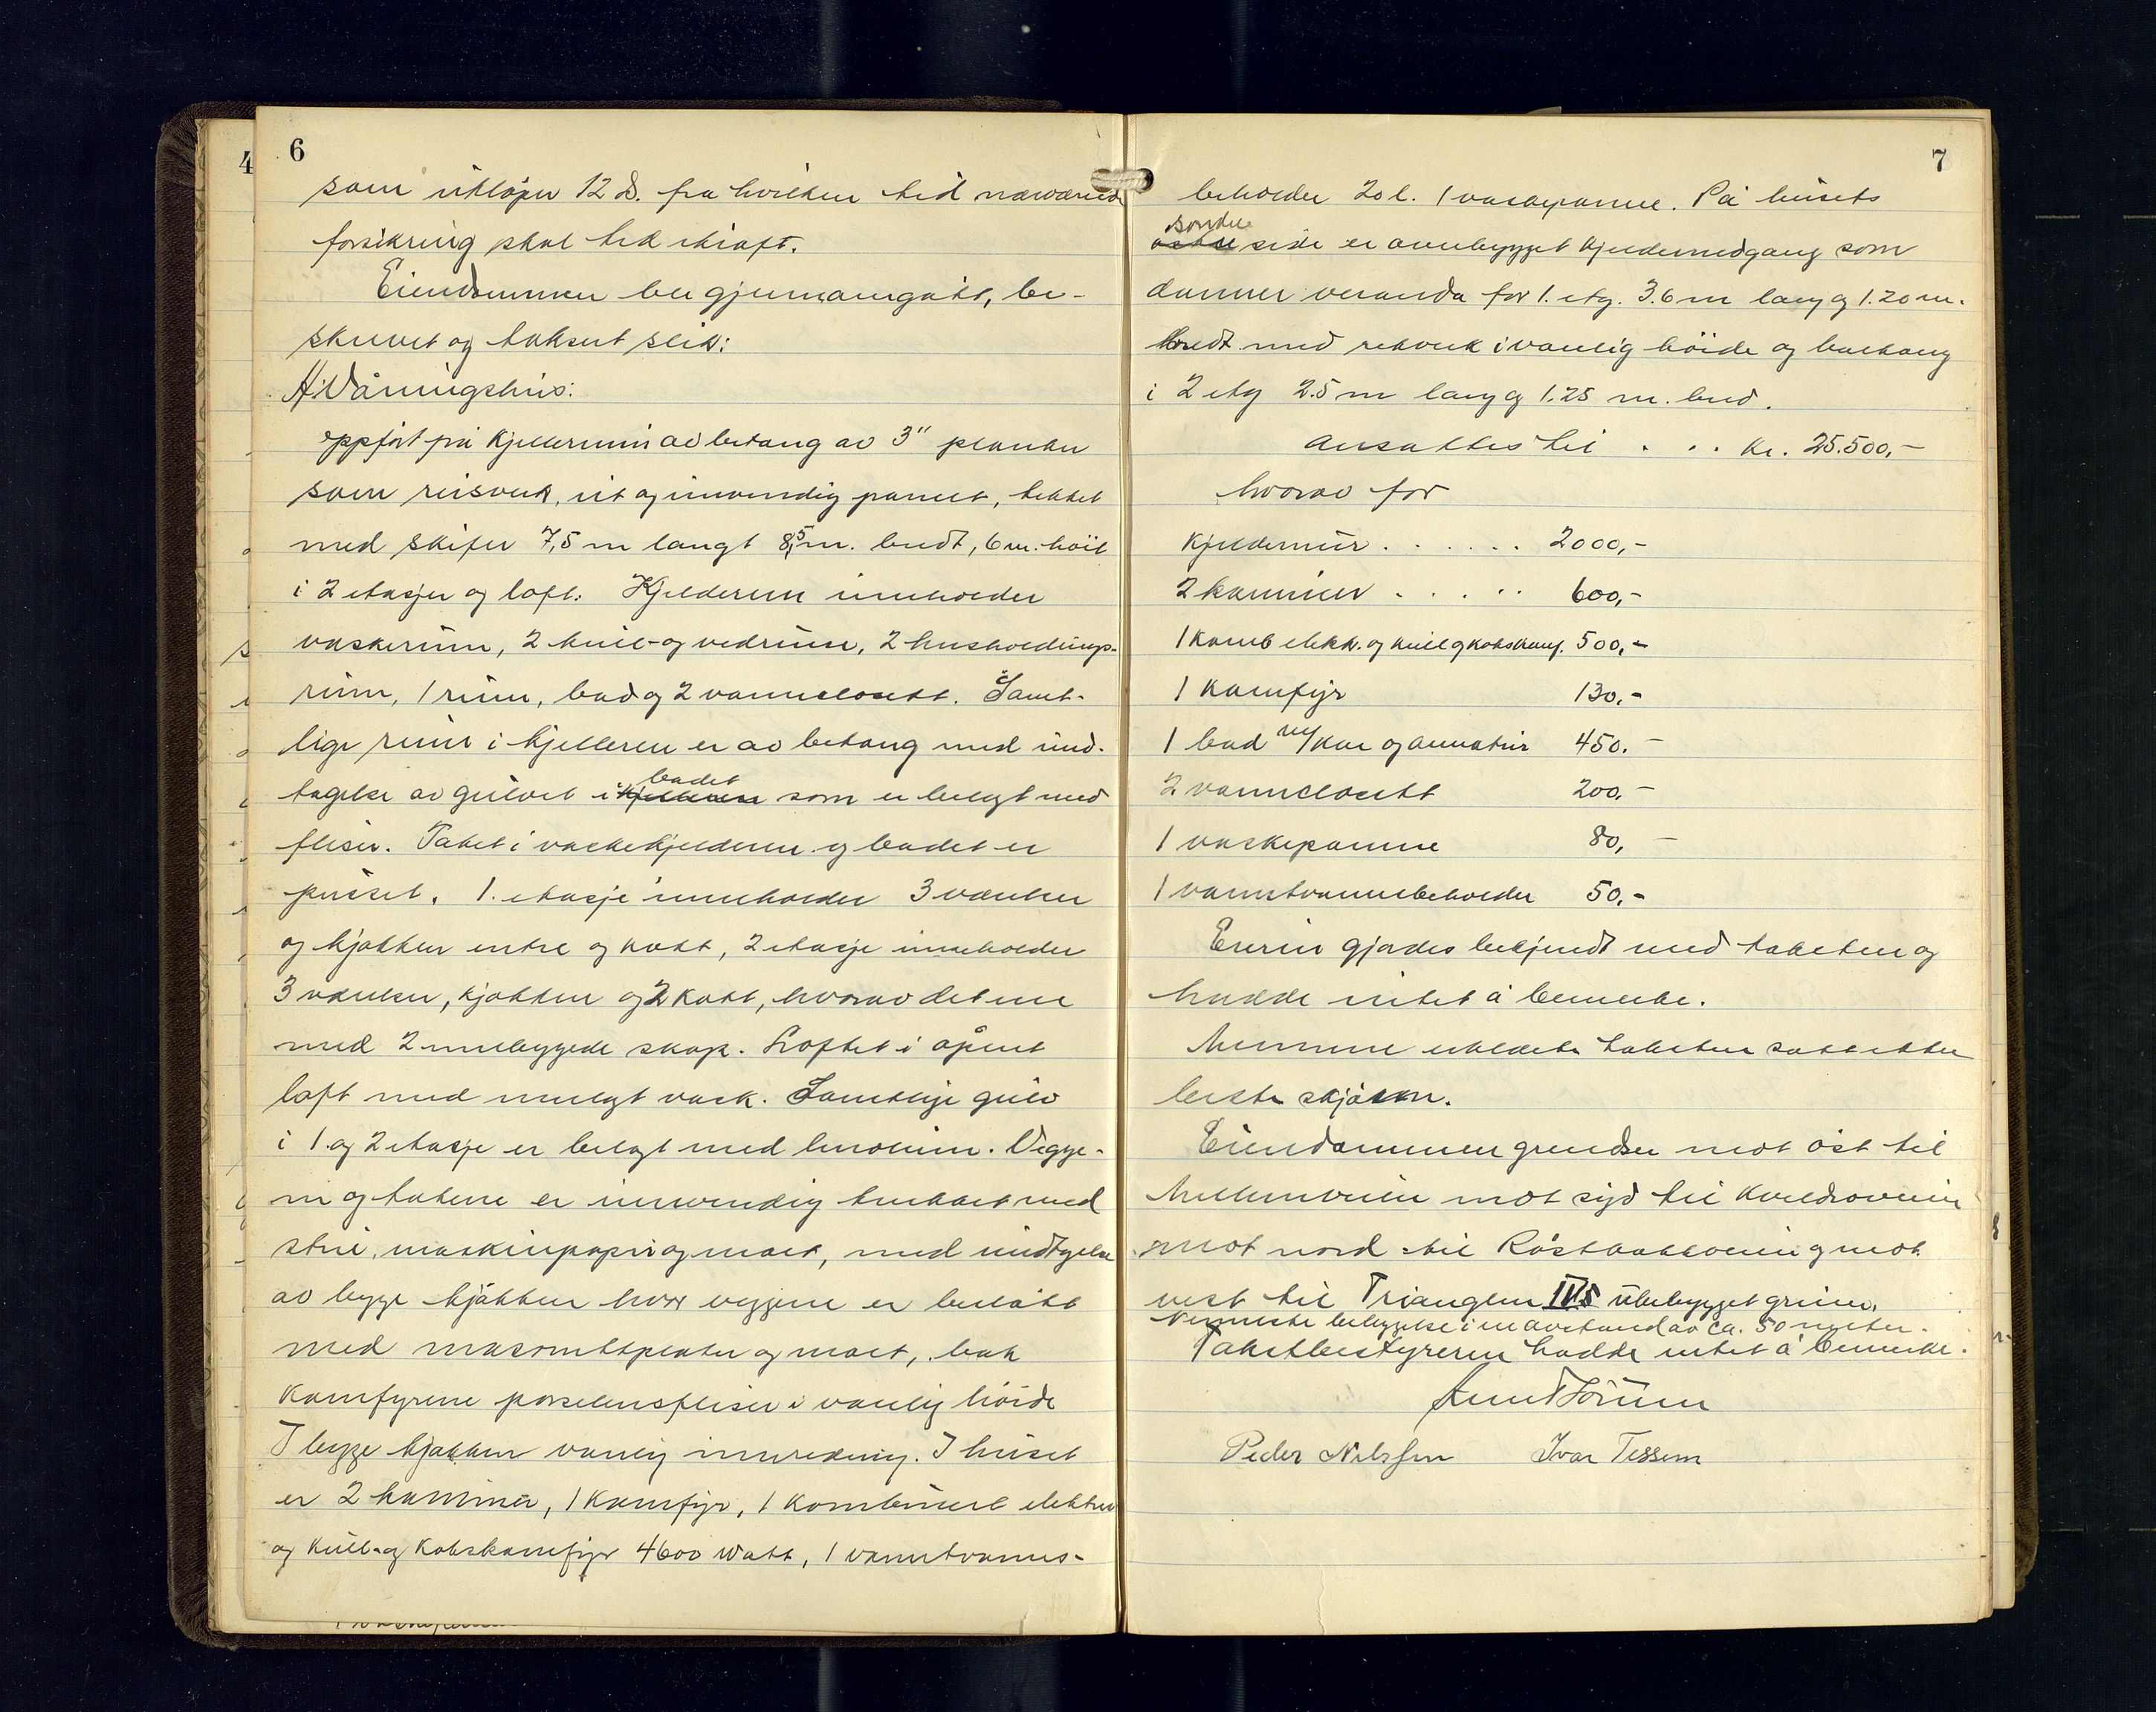 4
6
som utløper 12 d. fra hvilken tid nærværende
forsikring skal tre i kraft.
Eiendommen ble gjennemgått, be-
skrevet og taksert slik:
A: Våningshus:
oppført på kjellermur av betong av 3" planker
som reisverk, ut og innvendig panelt, tekket
med skifer 7,5 m langt 8,5 m. bredt, 6 m. høit
i 2 etasjer og loft. Kjelderen inneholder
vaskerum, 2 kull- og vedrum, 2 husholdnings-
rum, 1 rum, bad og 2 vannclosett. Samt-
lige rum i kjelleren er av betong med und-
tagelse av gulvet i kjelleren badet som er belagt med
fliser. Taket i vaskekjelderen og badet er
pusset. 1. etasje inneholder 3 værelser
og kjøkken entre og kott, 2 etasje inneholder
3 værelser, kjøkken og 2 kott, hvorav det ene
med 2 innebyggede skap. Loftet i åpent
loft med innlagt vask. Samtlige gulv
i 1. og 2 etasje er belagt med linoleum. Vegge-
ne og takene er innvendig trukket med
strie, maskinpapir og malt, med undtagelse
av begge kjøkken hvor veggene er beslått
med masonittplater og malt, bak
komfyrene porselensfliser i vanlig høide
I begge kjøkken vanlig innredning. I huset
er 2 kaminer, 1 komfyr, 1 kombinert elektrisk
og kull- og kokskomfyr 4600 watt, 1 varmtvanns-
7
beholder 20 l. 1 vaskepanne. På husets
østre søndre side er annbygget kjeldernedgang som
danner veranda for 1. etg. 3.6 m lang og 1.20 m.
bredt med rekverk i vanlig høide og balkong
i 2 etg 2.5 m lang og 1.25 m. bred.
Ansattes til . . . kr. 25.500,-
hvorav for
Kjeldermur . . . . . . 2000,-
2 kaminer . . . . . 600,-
1 komb elektr. og kull og kokskomf. 500,-
1 Komfyr 130,-
1 bad m/ kar og armatur 450.-
2 vannclosett 200.-
1 vaskepanne 80,-
1 varmtvannsbeholder 50.-
Eieren gjordes bekjendt med taksten og
hadde intet å bemerke.
Mennene erklærte taksten satt etter
beste skjønn.
Eiendommen grendser mot øst til
Mellemveien mot syd til Kveldroveien
mot nord til Røstbakkveien og mot
vest til Trianglen IV5 ubebygget grunn.
Nermeste bebyggelse i en avstand av ca. 50 meter.
Takstbestyreren hadde intet å bemerke.
Peder Nilssen Ivar Tessem